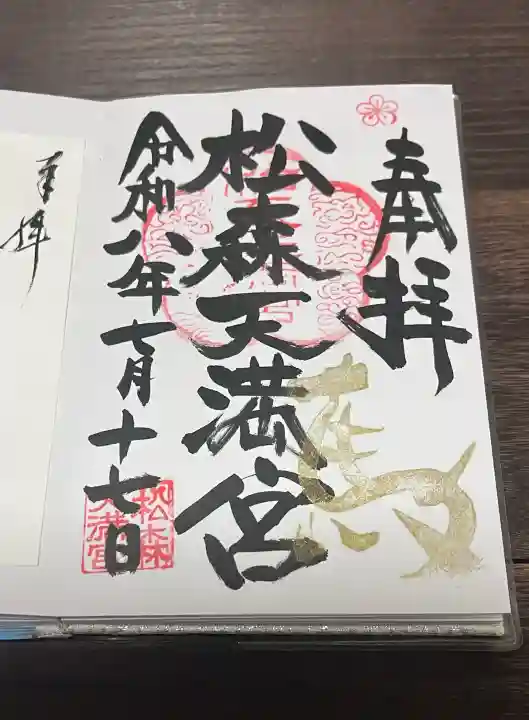 奉拝
松森天満宮
令和八年七月十七日
松森
天満宮
奉拝